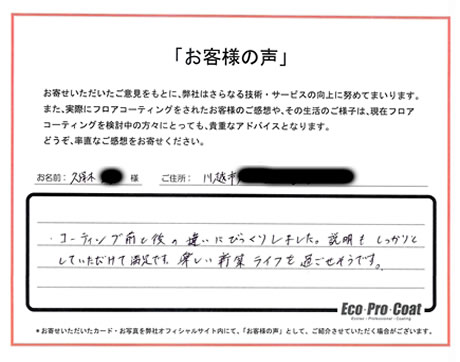 「お客様の声」
お寄せいただいたご意見をもとに、弊社はさらなる技術・サービスの向上に努めてまいります。
また、実際にフロアコーティングをされたお客様のご感想や、その生活のご様子は、現在フロア
コーティングを検討中の方々にとっても、貴重なアドバイスとなります。
どうぞ、率直なご感想をお寄せください。
お名前: 久保木 様 ご住所: 川越市
・コーティング前と後の違いにびっくりしました。説明もしっかりと
していただけて満足です。楽しい新築ライフを過ごせそうです。
Eco・Pro・Coat
*お寄せいただいたカード・お写真を弊社オフィシャルサイト内にて、「お客様の声」として、ご紹介させていただく場合がございます。